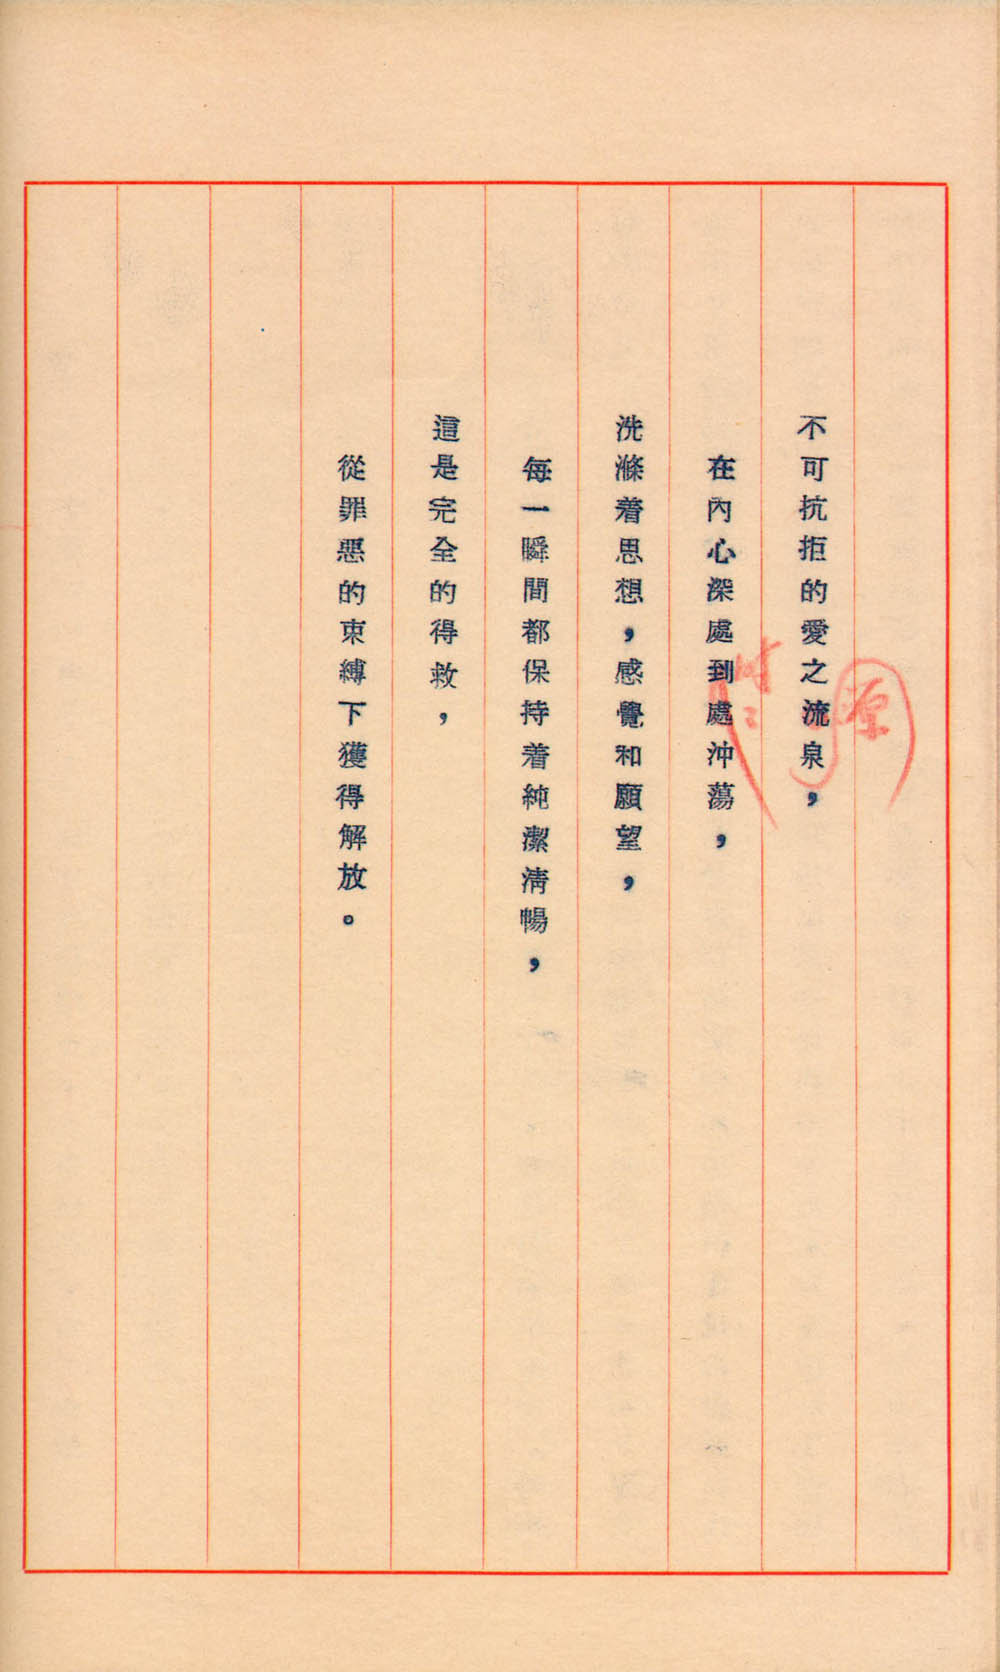 不可抗拒的愛之流泉，
源
在內心深處到處沖蕩，
洗滌着思想，感覺和願望，
每一瞬間都保持着純潔清暢，
這是完全的得救，
從罪惡的束縛下獲得解放。